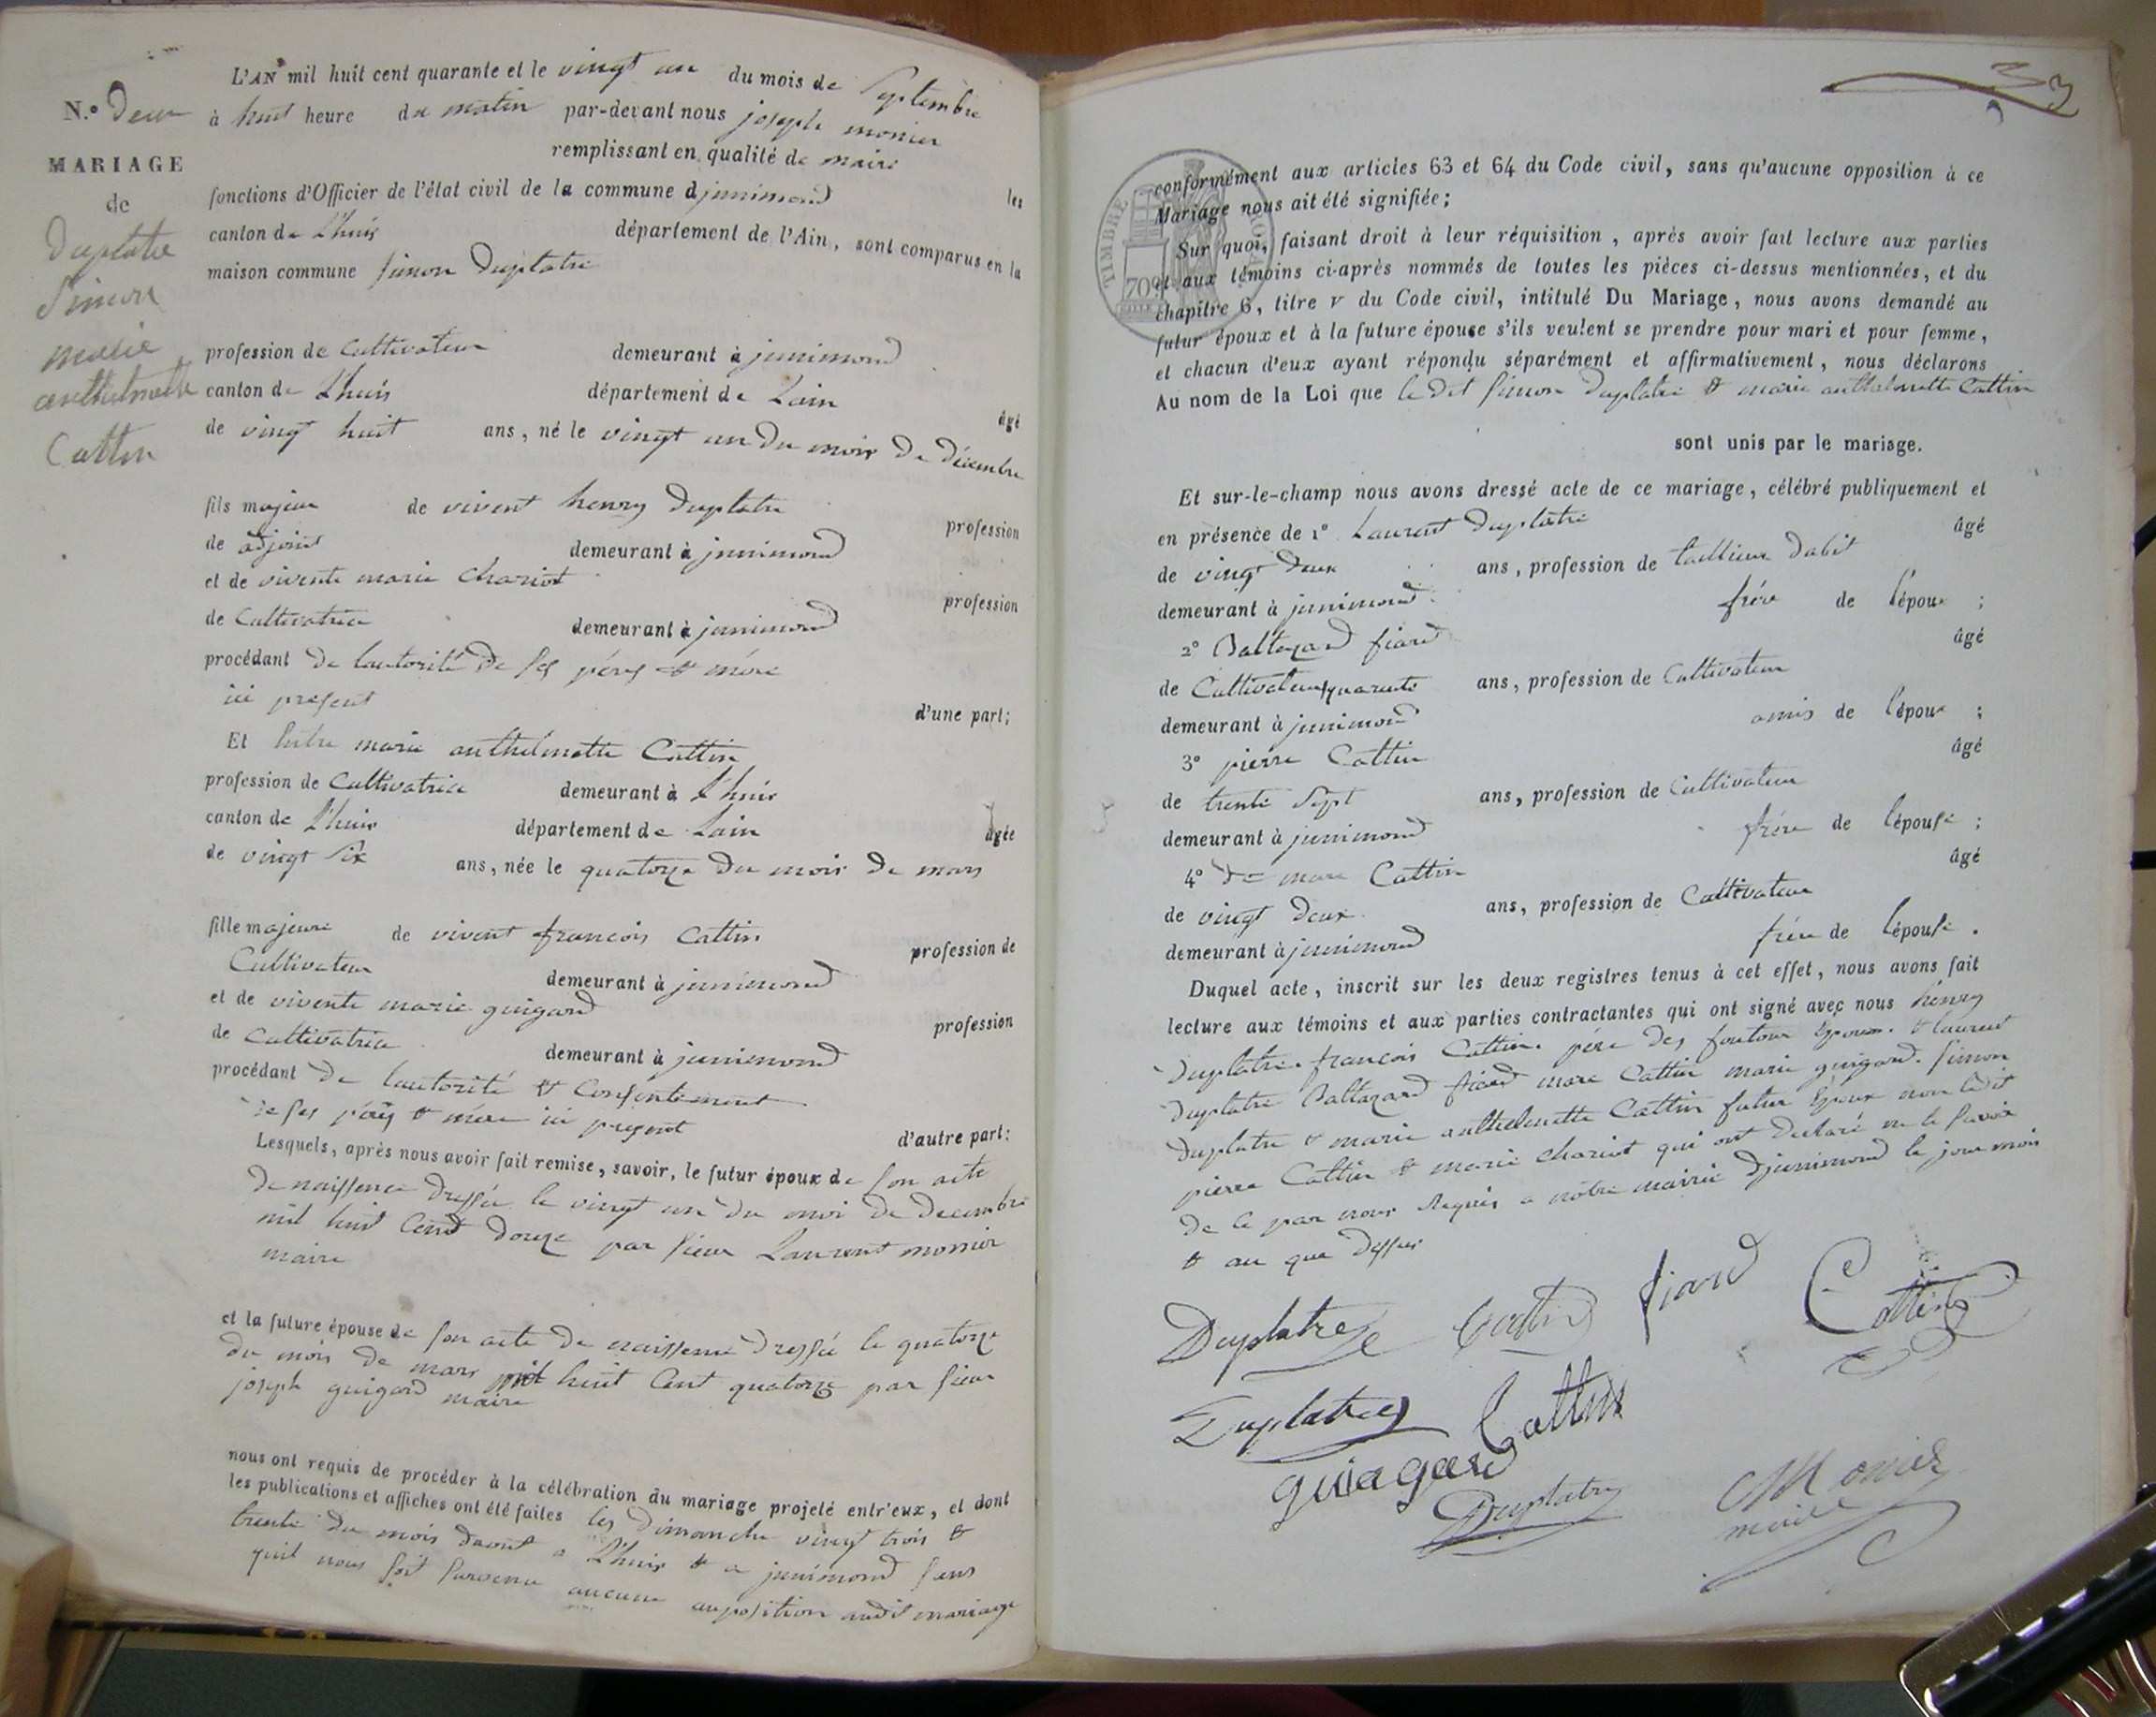 L'AN mil huit cent quarante et le vingt un du mois de Septembre
N.o Deux à huit heure du matin par-devant nous joseph monier
remplissant en qualité de maire
MARIAGE
de
Duplatre
Simon
marie
anthelmette
Cattin
fonctions d'Officier de l'état civil de la commune d junimond les
canton de L'huis département de l'Ain, sont comparus en la
maison commune Simon Duplatre
profession de Cultivateur demeurant à junimond
canton de L'huis département de Lain âgé
de vingt huit ans, né le vingt un du mois de décembre
fils majeur de vivent henry Duplatre profession
de adjoint demeurant à junimond
et de vivente marie chariot profession
de Cultivatrice demeurant à junimond
procédant de lautorité de ses pérés et mére
ici present d'une part;
Et marie anthelmette Cattin
profession de Cultivatrice demeurant à L'huis
canton de L'huis département de Lain âgée
de vingt six ans, née le quatorze du mois de mars
fille majeure de vivent francois Cattin profession de
Cultivateur demeurant à junimond
et de vivente marie guigard profession
de Cultivatrice demeurant à junimond
procédant de lautorité et Consentement
de ses pérés et mére ici present d'autre part:
Lesquels, après nous avoir fait remise, savoir, le futur époux de son acte
de naissence dressée le vingt un du moi de decembre
mil huit Cent douze par sieur Laurent monier
maire
et la future épouse de son acte de naissence dressée le quatorze
du mois de mars mil huit Cent quatorze par sieur
joseph guigard maire
nous ont requis de procéder à la célébration du mariage projeté entr'eux, et dont
les publications et affiches ont été faites les dimanche vingt trois et
trente du mois daout a L'huis et a junimond sans
quil nous soit parvenu aucune auposition audit mariage
33
TIMBRE ROYAL
70c
conformément aux articles 63 et 64 du Code civil, sans qu'aucune opposition à ce
Mariage nous ait été signifiée;
Sur quoi, faisant droit à leur réquisition, après avoir fait lecture aux parties
et aux témoins ci-après nommés de toutes les pièces ci-dessus mentionnées, et du
chapitre 6, titre v du Code civil, intitulé Du Mariage, nous avons demandé au
futur époux et à la future épouse s'ils veulent se prendre pour mari et pour femme,
et chacun d'eux ayant répondu séparément et affirmativement, nous déclarons
Au nom de la Loi que le dit Simon Duplatre et marie anthelmette Cattin
sont unis par le mariage.
Et sur-le-champ nous avons dressé acte de ce mariage, célébré publiquement et
en présence de 1o Laurent Duplatre âgé
de vingt deux ans, profession de taillieur dabit
demeurant à junimond frére de lépoux ;
2o Baltazard fiard âgé
de Cultivateur quarante ans, profession de Cultivateur
demeurant à junimond amis de lépoux ;
3o pierre Cattin âgé
de trente sept ans, profession de Cultivateur
demeurant à junimond frére de lépouse ;
4o de marc Cattin âgé
de vingt deux ans, profession de Cultivateur
demeurant à junimond frére de lépouse .
Duquel acte, inscrit sur les deux registres tenus à cet effet, nous avons fait
lecture aux témoins et aux parties contractantes qui ont signé avec nous henry
Duplatre. francois Cattin. pére des époux. et laurent
Duplatre Baltazard fiard marc Cattin marie guigard. Simon
Duplatre et marie anthelmette Cattin futur époux non ledit
pierre Cattin et marie chariot qui ont declaré ne le savoir
de ce par nous requis a nôtre mairie djunimond le jour mois
et an que dessus
Duplatre Cattin fiard Cattin
Duplatre Cattin
guiagard
Duplatre Monier
maire